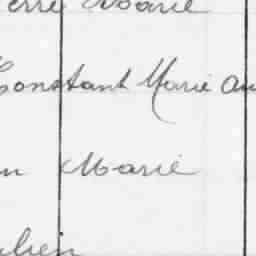 erre Marie
Constant Marie Au
n Marie
lien